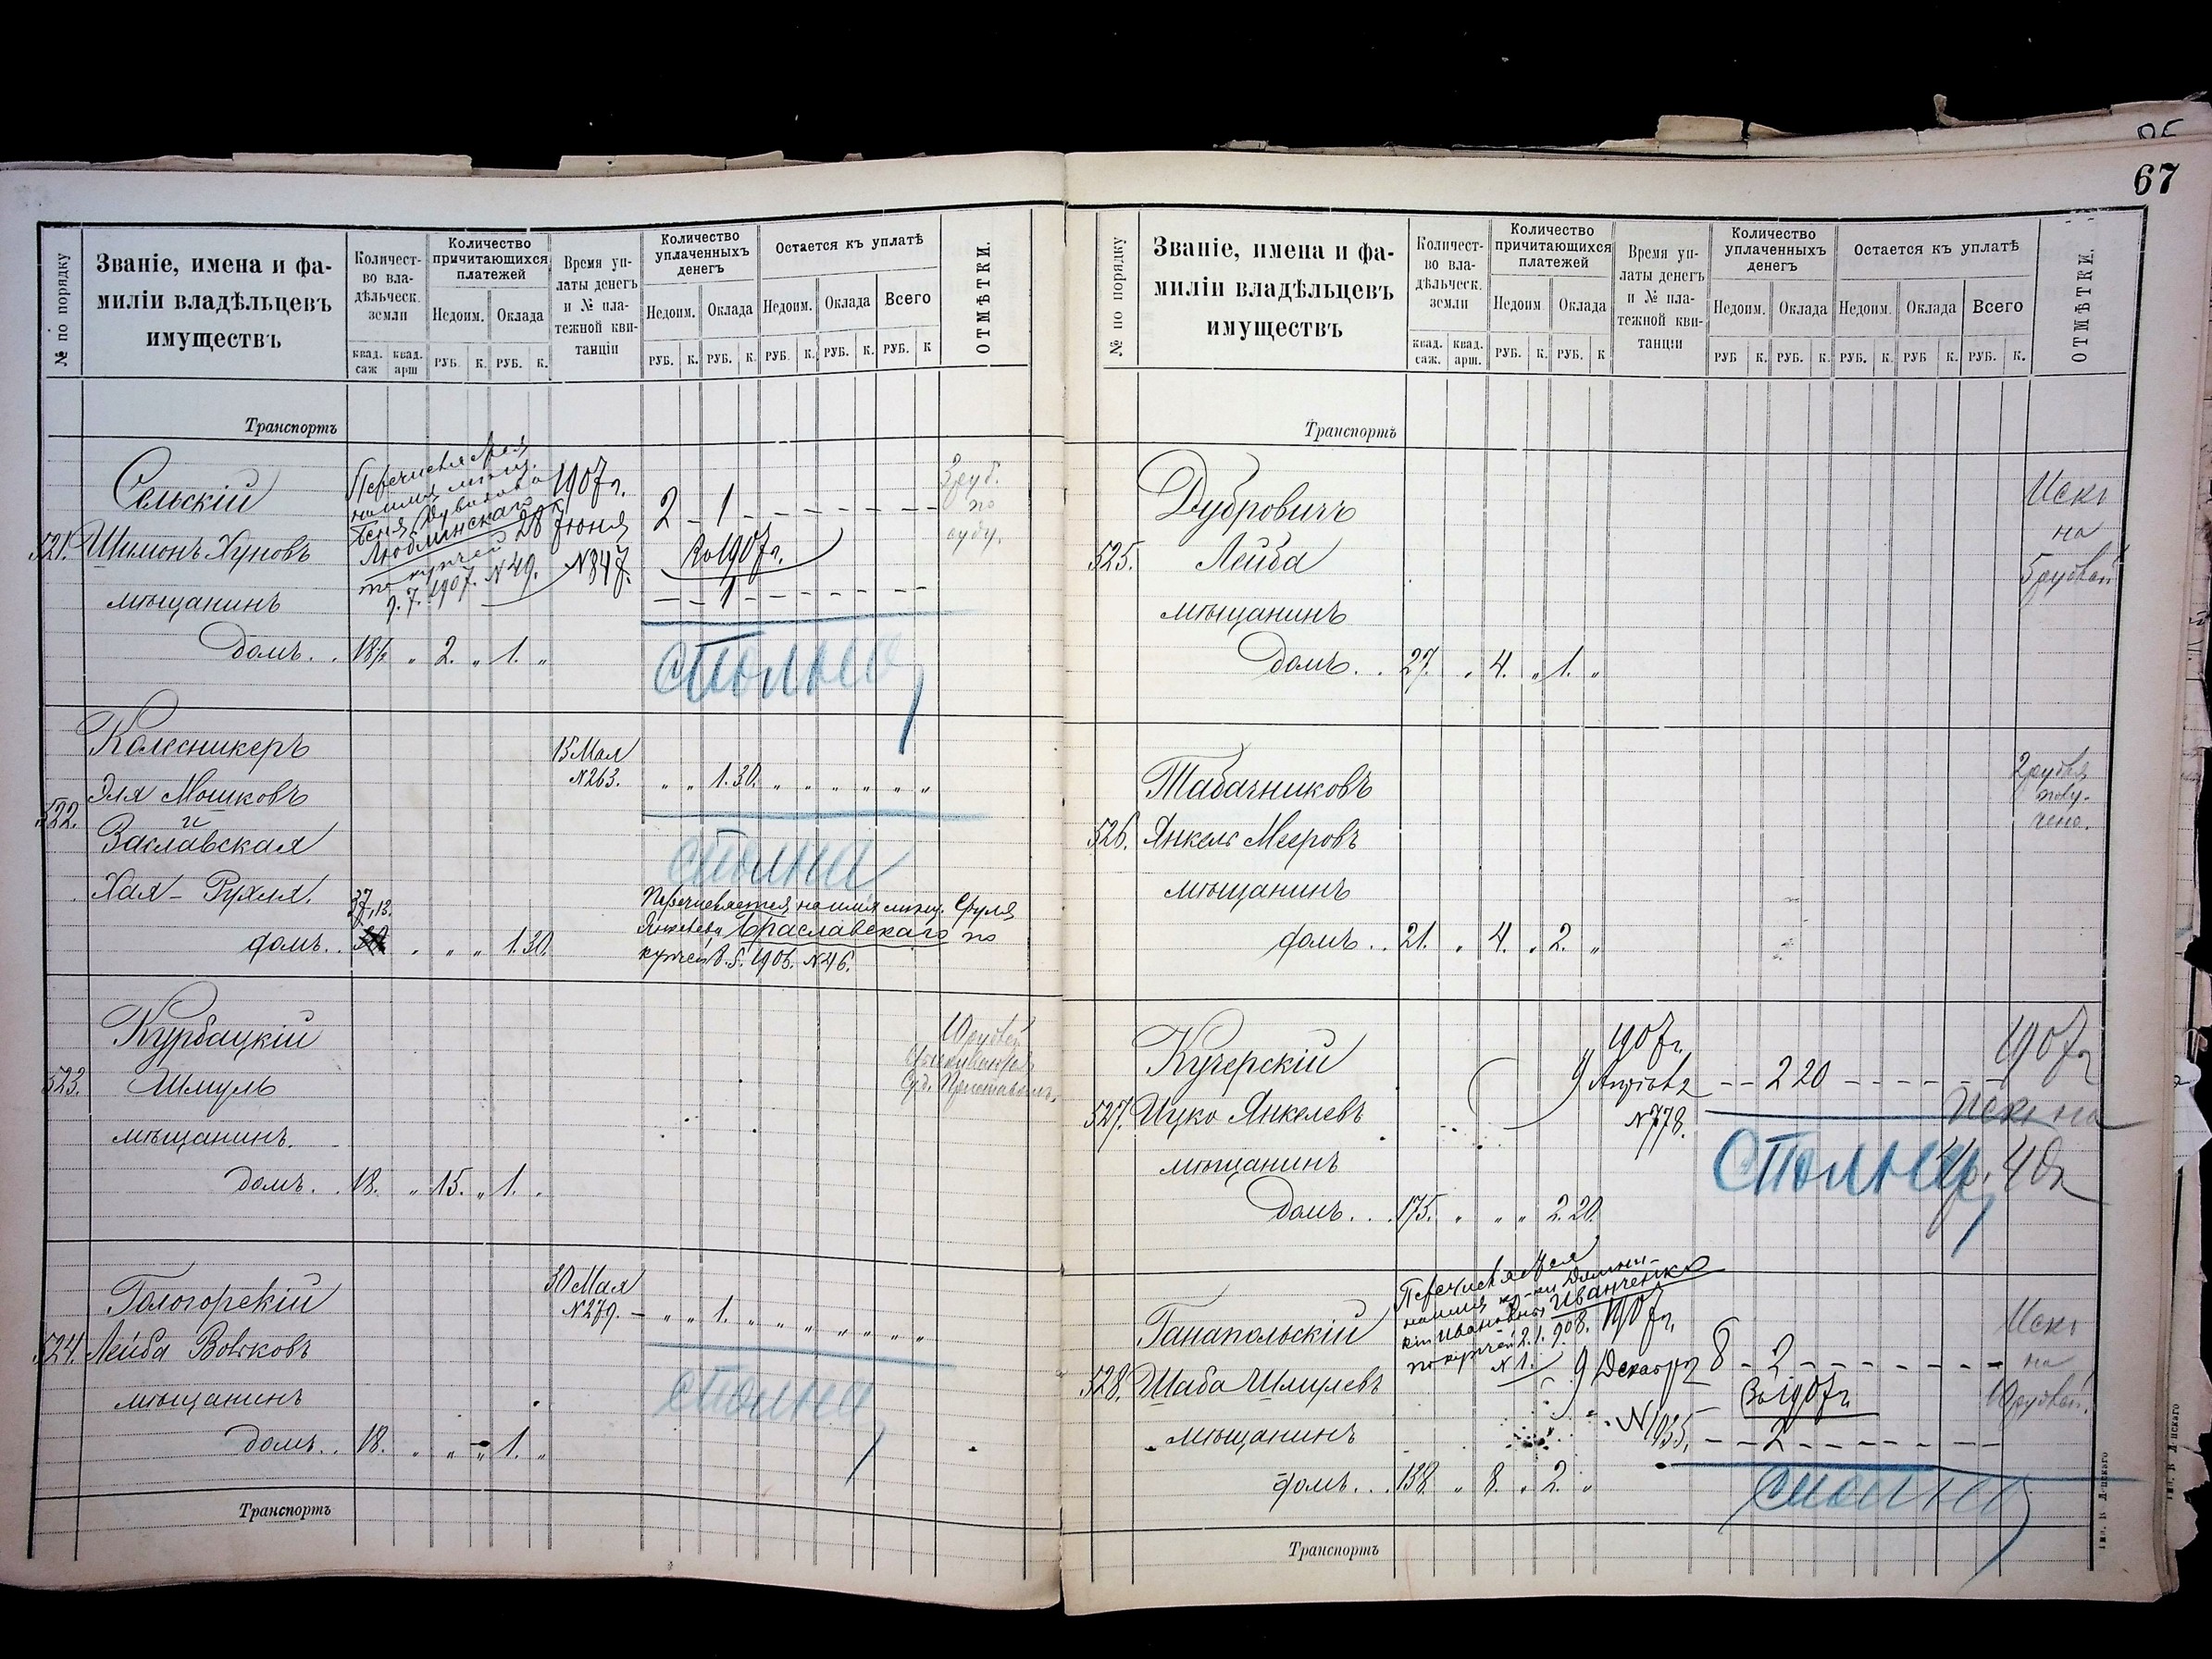 67
№ по порядку
Званіе, имена и фа-
миліи владѣльцевъ
имуществъ
Количест-
во вла-
дѣльческ.
земли
квад. саж
квад. арш
Количество
причитающихся
платежей
Недоим.
Оклада
РУБ. К. РУБ. К.
Время уп-
латы денегъ
и № пла-
тежной кви-
танціи
Количество
уплаченныхъ
денегъ
Недоим. Оклада
РУБ. К. РУБ. К.
Остается къ уплатѣ
Недоим. Оклада Всего
РУБ. К. РУБ. К. РУБ. К
ОТМѢТКИ.
Транспортъ
Сельскій
521. Шимонъ Хуновъ
мѣщанинъ
домъ. . 18½ „ 2. „ 1. „
Перечисляется
на имя мѣщ.
Люблинскаго
по купчей
7. 1907. N 49.
1907 г.
28 Іюня
N 347.
2 - 1 - - - - - - -
За 1907 г.
- - 1 - - - - - - -
сполна
3 руб.
по
суду.
Колесникеръ
Эля Мошковъ
522. и
Заславская
Хая-Рухля.
домъ. . 37,13. „ „ 1.30.
15 Мая
N 263.
„ „ 1.30. „ „ „ „ „ „
сполна
Перечисляется на имя мѣщ. Сруля
Янкелева Браславскаго по
купчей 8. 5. 1906. N 46.
Курбацкій
523. Шмуль
мѣщанинъ.
домъ. . 18. „ 15. „ 1. „
10 рублей
взыскивается
Суд. Приставомъ.
Гологорскій
524. Лейба Вовковъ
мѣщанинъ
домъ. . 18. „ „ „ 1. „
30 Мая
N 279. — „ „ 1. „ „ „ „ „ „ „
сполна
Транспортъ
№ по порядку
Званіе, имена и фа-
миліи владѣльцевъ
имуществъ
Количест-
во вла-
дѣльческ.
земли
квад. саж.
квад. арш.
Количество
причитающихся
платежей
Недоим
Оклада
РУБ. К. РУБ. К
Время уп-
латы денегъ
и № пла-
тежной кви-
танціи
Количество
уплаченныхъ
денегъ
Недоим. Оклада
РУБ К. РУБ. К.
Остается къ уплатѣ
Недоим. Оклада Всего
РУБ. К. РУБ К. РУБ. К.
ОТМѢТКИ.
Транспортъ
Дубровичъ
525. Лейба
мѣщанинъ
домъ. . 27. „ 4. „ 1. „
Искъ
на
5 рублей
Табачниковъ
526. Янкель Мееровъ
мѣщанинъ
домъ. . 21. „ 4. „ 2. „
2 рубля
полу-
чено.
Кучерскій
527. Ицко Янкелевъ
мѣщанинъ
домъ. . . 175. „ „ „ 2.20.
1907 г.
9 Апрѣля
N 778.
- - 2 20 - - - - - -
сполна
1907 г
Искъ на
4 р. 40 к
Ганапольскій
528. Шаба Шмулевъ
мѣщанинъ
домъ. . . 138. „ 8. „ 2. „
Перечисляется
на имя кр-ки Домни-
кіи Ивановны Иванченко
по купчей 2. 1. 908.
N 1.
1907 г.
9 Декабря
N 1935.
8 - 2 - - - - - - -
За 1907 г.
- - 2 - - - - - - -
сполна
Искъ
на
10 рублей.
Транспортъ